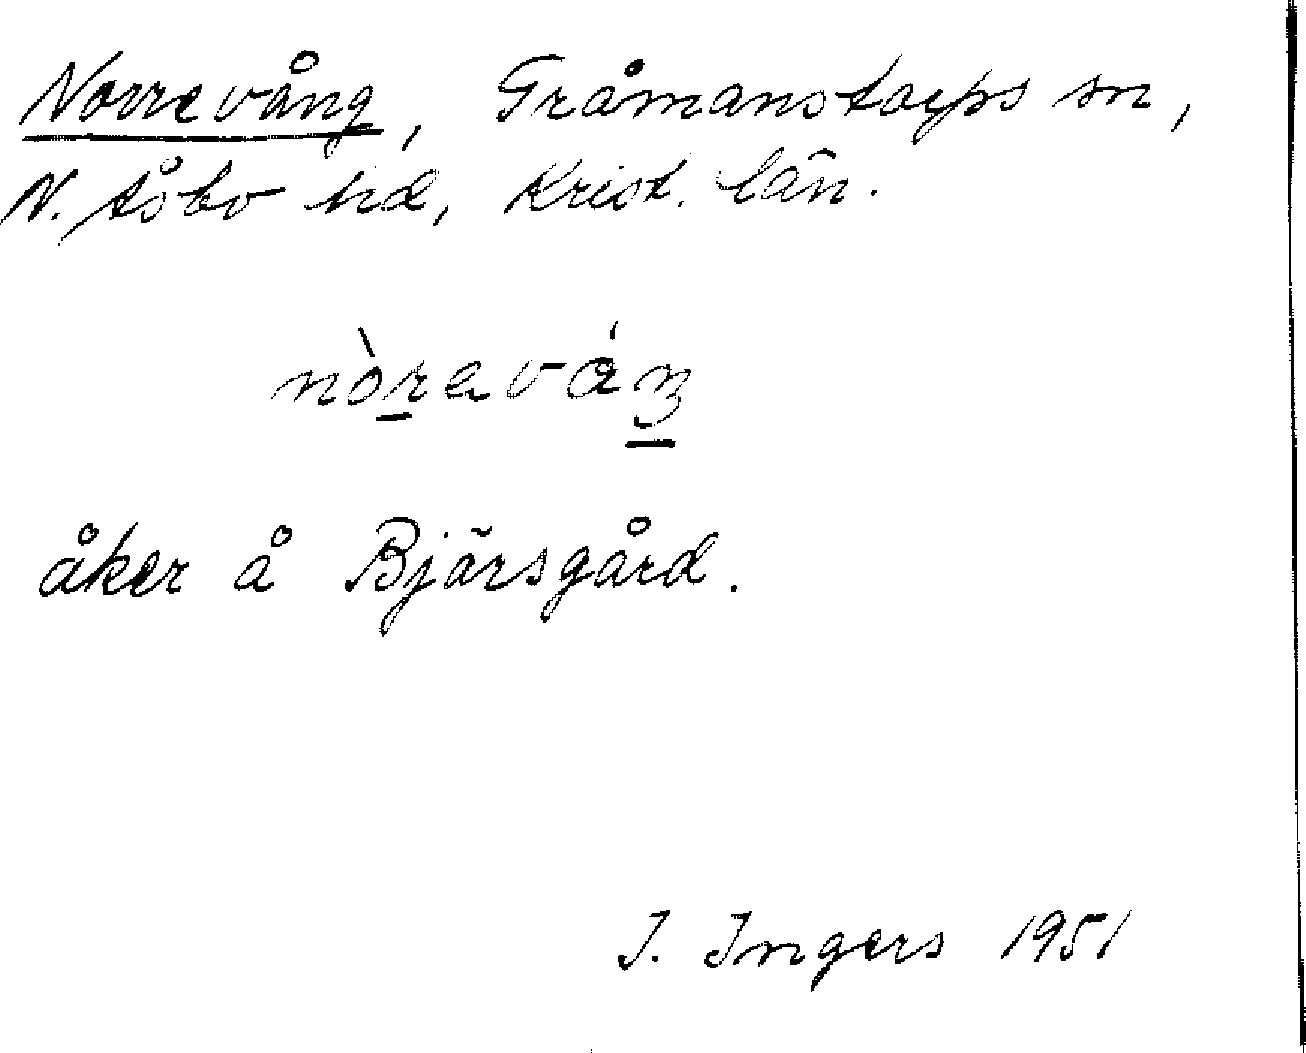 Norrevång, Gråmanstorps sn,
N. Åsbo hd, Krist. län.
nòraváŋ
åker å Bjärsgård.
I. Ingers 1951